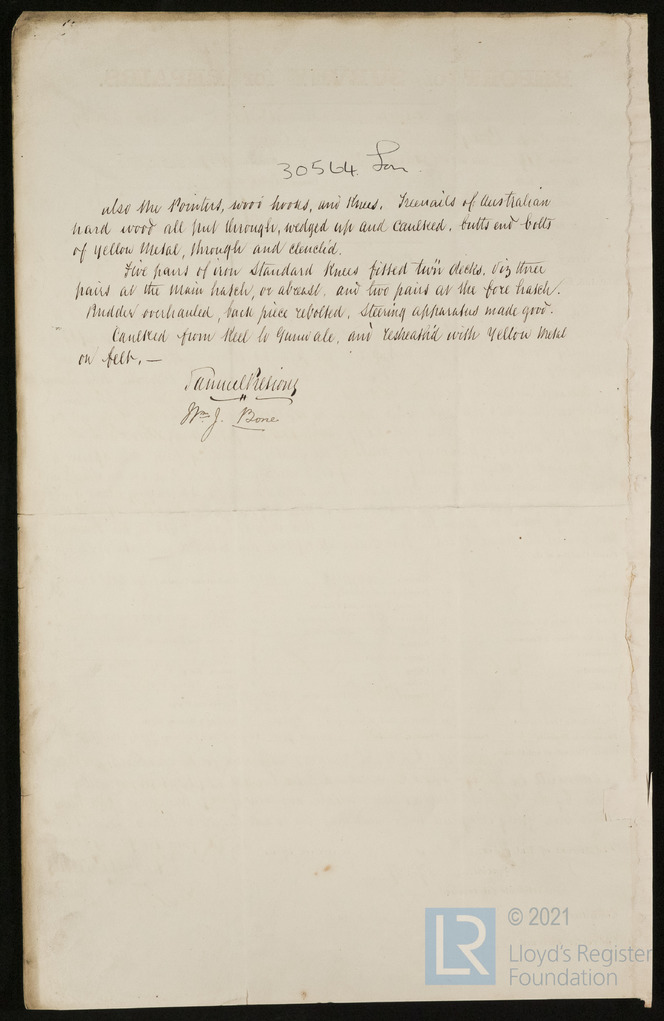 30564. Lon.
also the Pointers, wood hooks, and Knees. Treenails of Australian
hard wood all put through, wedged up and Caulked. butts end bolts
of yellow Metal, through and clench'd.
Five pairs of iron Standard Knees fitted tw'n decks. Viz three
pairs at the Main hatch, or abreast. and two pairs at the fore hatch.
Rudder overhauled, back piece rebolted. Steering apparatus made good.
Caulked from Keel to Gunwale, and resheath'd with Yellow Metal
on felt. —
Samuel
Wm. J. Bone
LR
© 2021
Lloyd's Register
Foundation